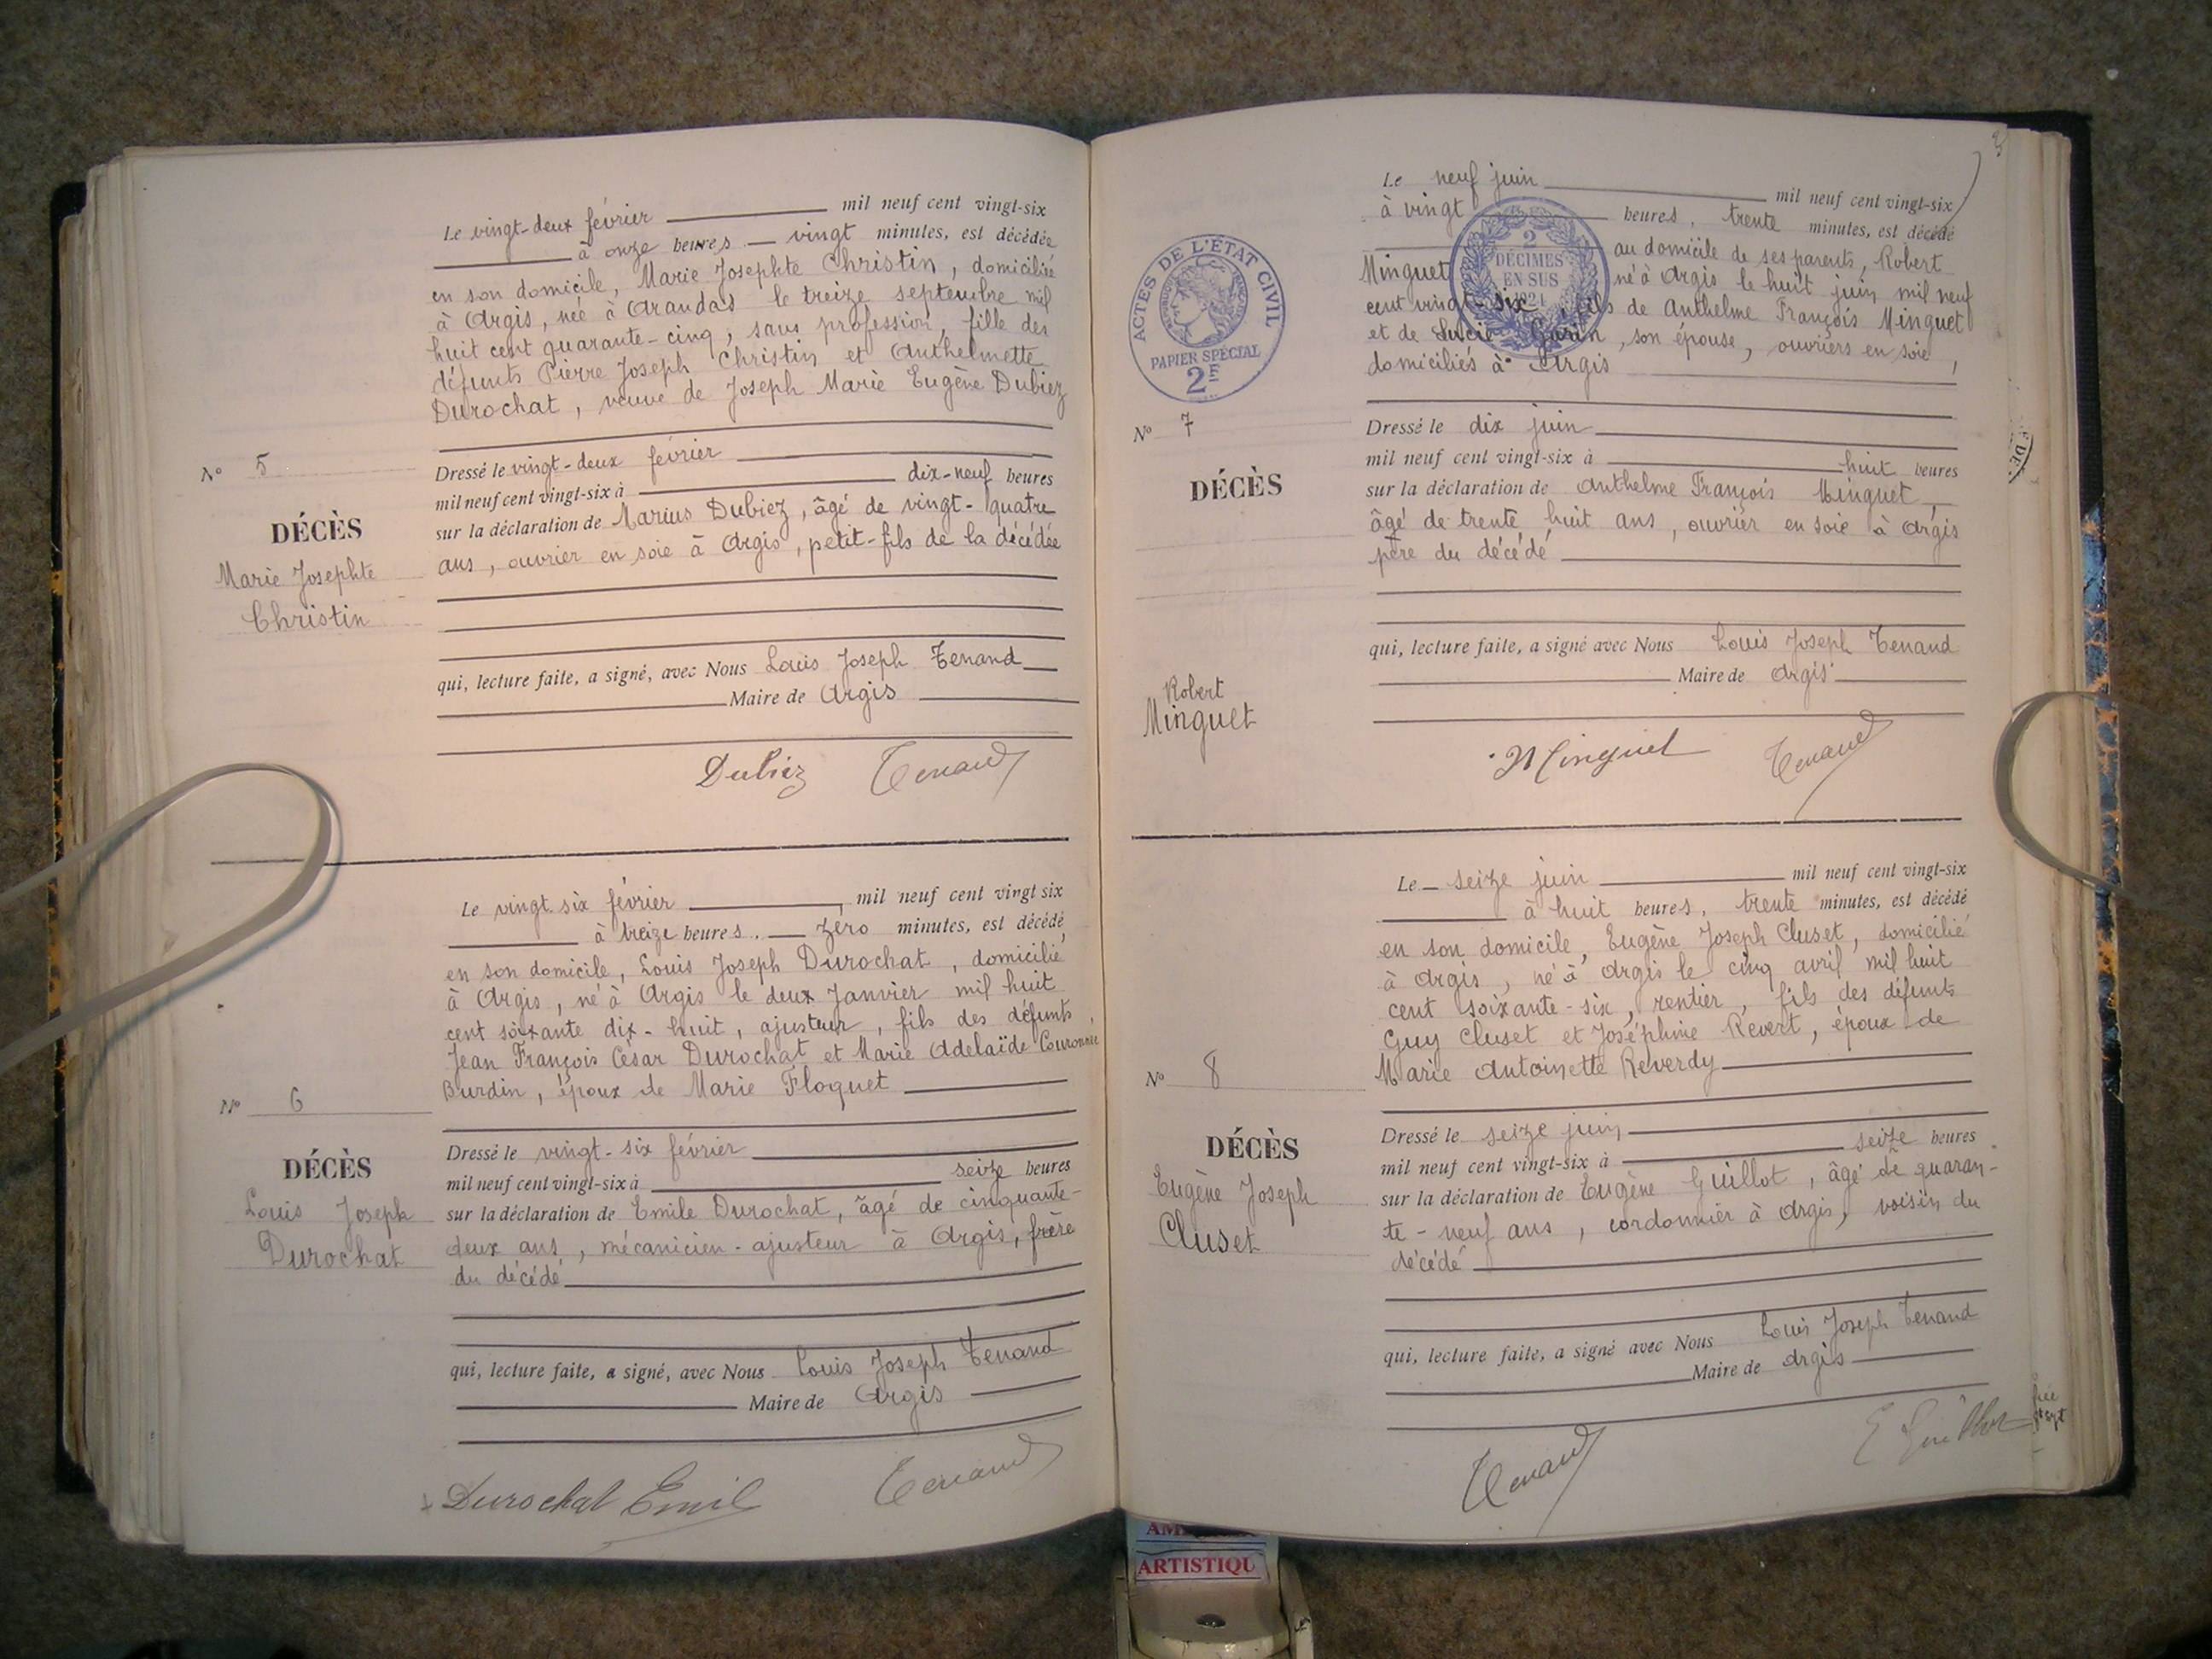 Le vingt-deux février mil neuf cent vingt-six
à onze heures vingt minutes, est décédée
en son domicile, Marie Josephte Christin, domiciliée
à Argis, née à Arandas le treize septembre mil
huit cent quarante-cinq, sans profession, fille des
défunts Pierre Joseph Christin et Anthelmette
Durochat, veuve de Joseph Marie Eugène Dubiez
N° 5
DÉCÈS
Marie Josephte
Christin
Dressé le vingt-deux février
mil neuf cent vingt-six à dix-neuf heures
sur la déclaration de Marius Dubiez, âgé de vingt-quatre
ans, ouvrier en soie à Argis, petit-fils de la décédée
qui, lecture faite, a signé, avec Nous Louis Joseph Tenand
Maire de Argis
Dubiez Tenand
Le vingt-six février mil neuf cent vingt six
à treize heures. zéro minutes, est décédé
en son domicile, Louis Joseph Durochat, domicilié
à Argis, né à Argis le deux Janvier mil huit
cent soixante dix-huit, ajusteur, fils des défunts
Jean François César Durochat et Marie Adelaïde Couronnée
Burdin, époux de Marie Floquet
N° 6
DÉCÈS
Louis Joseph
Durochat
Dressé le vingt-six février
mil neuf cent vingt-six à seize heures
sur la déclaration de Emile Durochat, âgé de cinquante-
deux ans, mécanicien-ajusteur à Argis, frère
du décédé
qui, lecture faite, a signé, avec Nous Louis Joseph Tenand
Maire de Argis
Durochat Emil Tenand
Le neuf juin mil neuf cent vingt-six
à vingt heures, trente minutes, est décédé
au domicile de ses parents, Robert
Minguet né à Argis le huit juin mil neuf
cent vingt-six fils de Anthelme François Minguet
et de Lucie Garin, son épouse, ouvriers en soie,
domiciliés à Argis
ACTES DE L'ÉTAT CIVIL
PAPIER SPÉCIAL
2F
2
DÉCIMES
EN SUS
1921
N° 7
DÉCÈS
Robert
Minguet
Dressé le dix juin
mil neuf cent vingt-six à huit heures
sur la déclaration de Anthelme François Minguet
âgé de trente huit ans, ouvrier en soie à Argis
père du décédé
qui, lecture faite, a signé avec Nous Louis Joseph Tenand
Maire de Argis
Minguet Tenand
Le seize juin mil neuf cent vingt-six
à huit heures, trente minutes, est décédé
en son domicile, Eugène Joseph Cluset, domicilié
à Argis, né à Argis le cinq avril mil huit
cent soixante-six, rentier, fils des défunts
Guy Cluset et Joséphine Révert, époux de
Marie Antoinette Reverdy
N° 8
DÉCÈS
Eugène Joseph
Cluset
Dressé le seize juin
mil neuf cent vingt-six à seize heures
sur la déclaration de Eugène Guillot, âgé de quaran-
te-neuf ans, cordonnier à Argis, voisin du
décédé
qui, lecture faite, a signé avec Nous Louis Joseph Tenand
Maire de Argis
Tenand E Guillot
ARTISTIQU